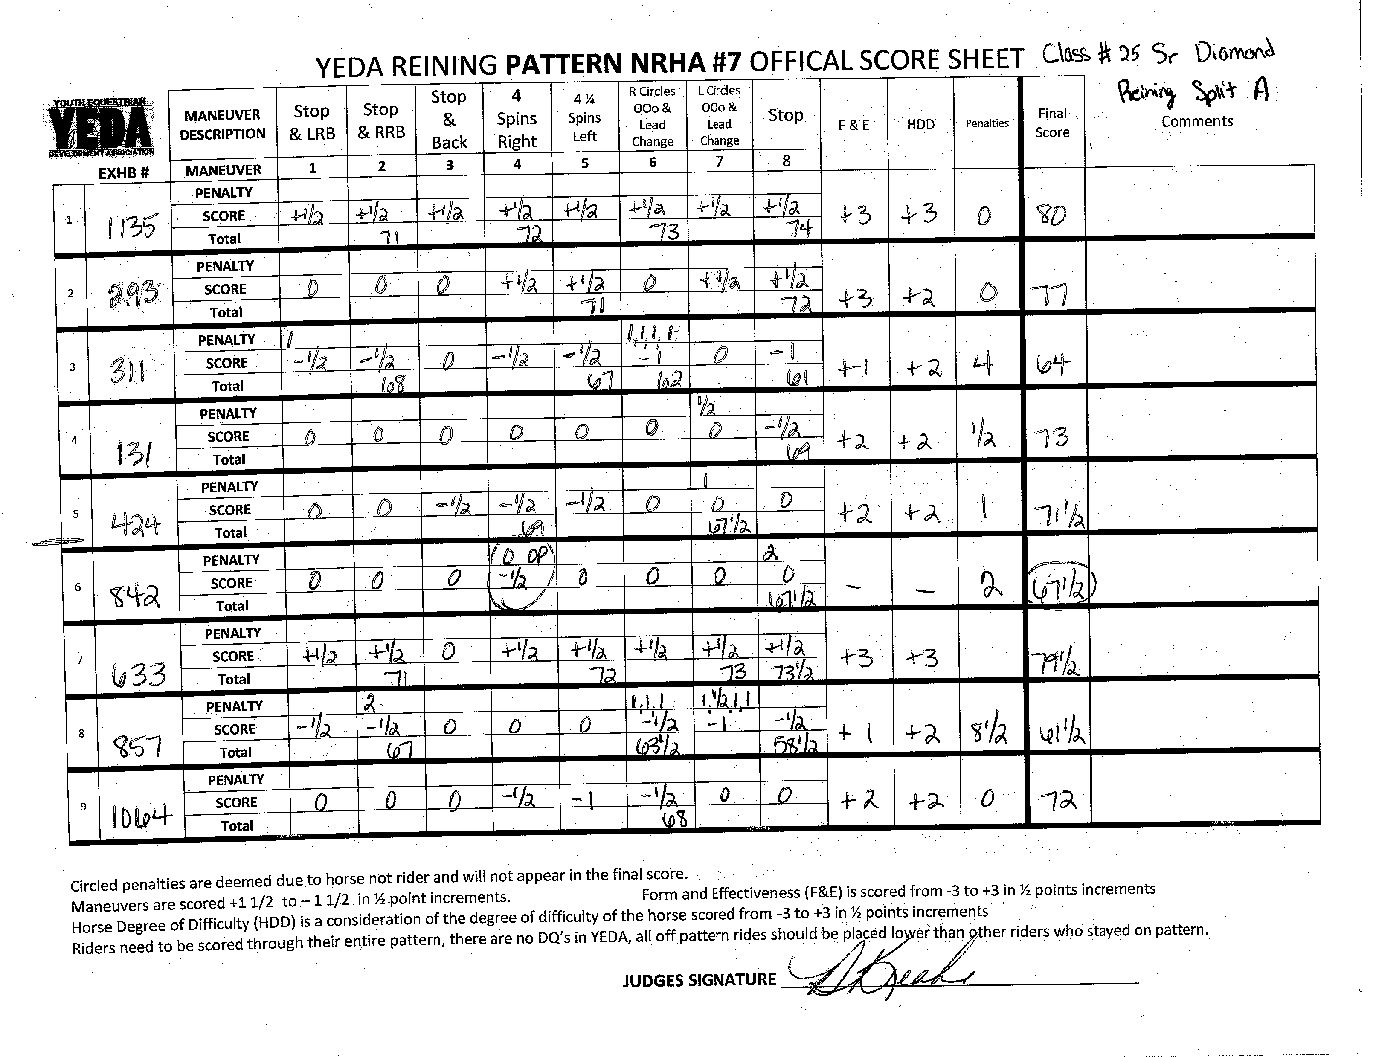 YEDA REINING PATTERN NRHA #7 OFFICAL SCORE SHEET Class # 25 Sr Diamond
Reining Split A
YOUTH EQUESTRIAN
YEDA
DEVELOPMENT ASSOCIATION
EXHB # MANEUVER DESCRIPTION Stop & LRB Stop & RRB Stop & Back 4 Spins Right 4 ¼ Spins Left R Circles OOo & Lead Change L Circles OOo & Lead Change Stop F & E HDD Penalties Final Score Comments
MANEUVER 1 2 3 4 5 6 7 8
1 1135 PENALTY
SCORE +1/2 +1/2 +1/2 +1/2 +1/2 +1/2 +1/2 +1/2 +3 +3 0 80
Total 71 72 73 74
2 293 PENALTY
SCORE 0 0 0 +1/2 +1/2 0 +1/2 +1/2 +3 +2 0 77
Total 71 72
3 311 PENALTY 1 1,1,1,1
SCORE -1/2 -1/2 0 -1/2 -1/2 -1 0 -1 +1 +2 4 64
Total 68 67 62 61
4 131 PENALTY 1/2
SCORE 0 0 0 0 0 0 0 -1/2 +2 +2 1/2 73
Total 69
5 424 PENALTY 1
SCORE 0 0 -1/2 -1/2 -1/2 0 0 0 +2 +2 1 71 1/2
Total 69 67 1/2
6 842 PENALTY 0 OP 2
SCORE 0 0 0 -1/2 0 0 0 0 – – 2 67 1/2
Total 67 1/2
7 633 PENALTY
SCORE +1/2 +1/2 0 +1/2 +1/2 +1/2 +1/2 +1/2 +3 +3 79 1/2
Total 71 72 73 73 1/2
8 857 PENALTY 2 1,1,1 1,1/2,1,1
SCORE -1/2 -1/2 0 0 0 -1/2 -1 -1/2 +1 +2 8 1/2 61 1/2
Total 67 63 1/2 58 1/2
9 1064 PENALTY
SCORE 0 0 0 -1/2 -1 -1/2 0 0 +2 +2 0 72
Total 68
Circled penalties are deemed due to horse not rider and will not appear in the final score.
Maneuvers are scored +1 1/2 to – 1 1/2 in ½ point increments. Form and Effectiveness (F&E) is scored from -3 to +3 in ½ points increments
Horse Degree of Difficulty (HDD) is a consideration of the degree of difficulty of the horse scored from -3 to +3 in ½ points increments
Riders need to be scored through their entire pattern, there are no DQ's in YEDA, all off pattern rides should be placed lower than other riders who stayed on pattern.
JUDGES SIGNATURE